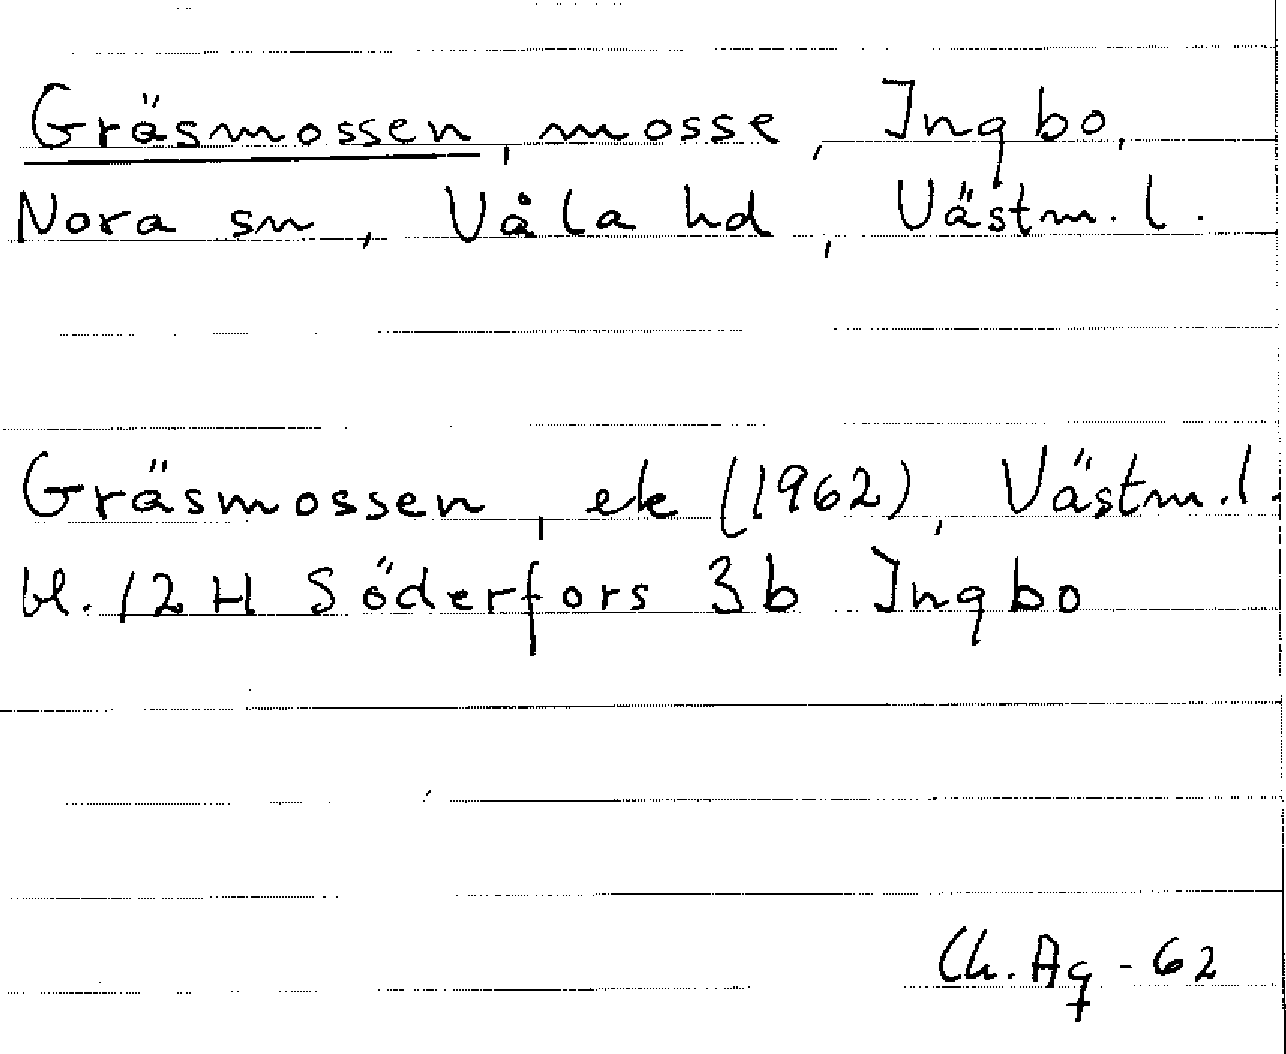 Gräsmossen, mosse, Ingbo,
Nora sn, Våla hd, Västm. l.
Gräsmossen, ek (1962), Västm. l.
bl. 12 H Söderfors 3b Ingbo
Ch. Ag - 62